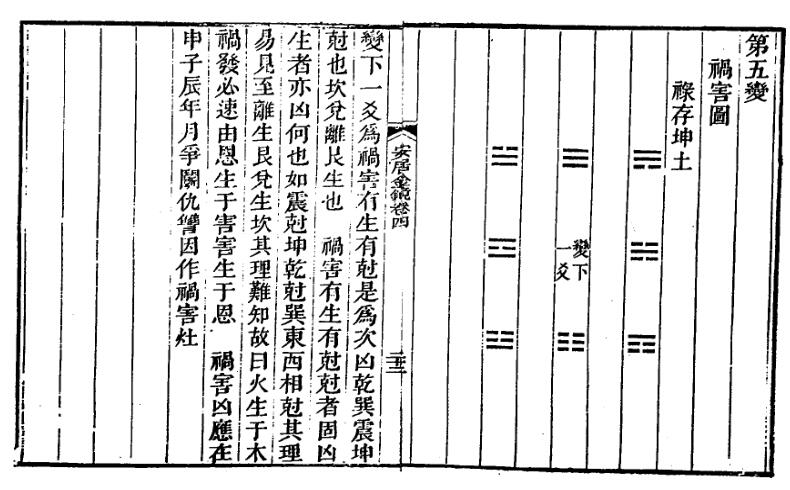 第五變
禍害圖
祿存坤土
變下
一爻
安居金鏡卷四
變下一爻爲禍害有生有尅是爲次凶乾巽震坤
尅也坎兌離艮生也　禍害有生有尅尅者固凶
生者亦凶何也如震尅坤乾尅巽東西相尅其理
易見至離生艮兌生坎其理難知故曰火生于木
禍發必速由恩生于害害生于恩　禍害凶應在
申子辰年月爭鬭仇讐因作禍害灶